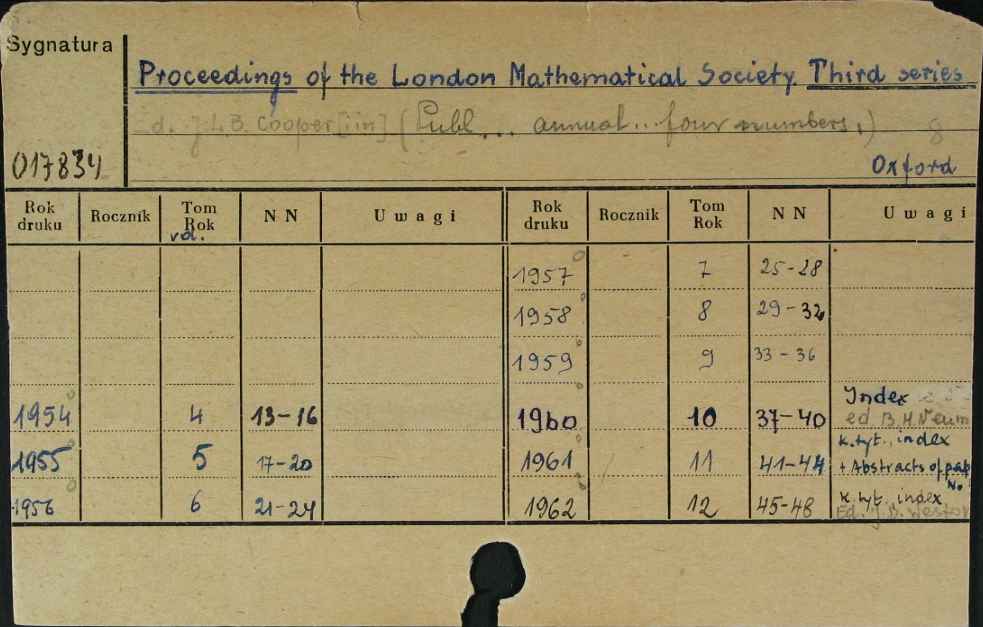 Sygnatura
Proceedings of the London Mathematical Society. Third series
d. J.L.B. Cooper [i in] (Publ... annual... four numbers.) 8
017834
Oxford
Rok druku Rocznik Tom Rok vol. NN Uwagi Rok druku Rocznik Tom Rok NN Uwagi
1957 7 25-28
1958 8 29-32
1959 9 33-36
1954 4 13-16 1960 10 37-40 Index
ed B.H. Neum
1955 5 17-20 1961 11 41-44 k.tyt., index
+ Abstracts of pap
No.
1956 6 21-24 1962 12 45-48 k.tyt., index
Ed. J.D. Weston